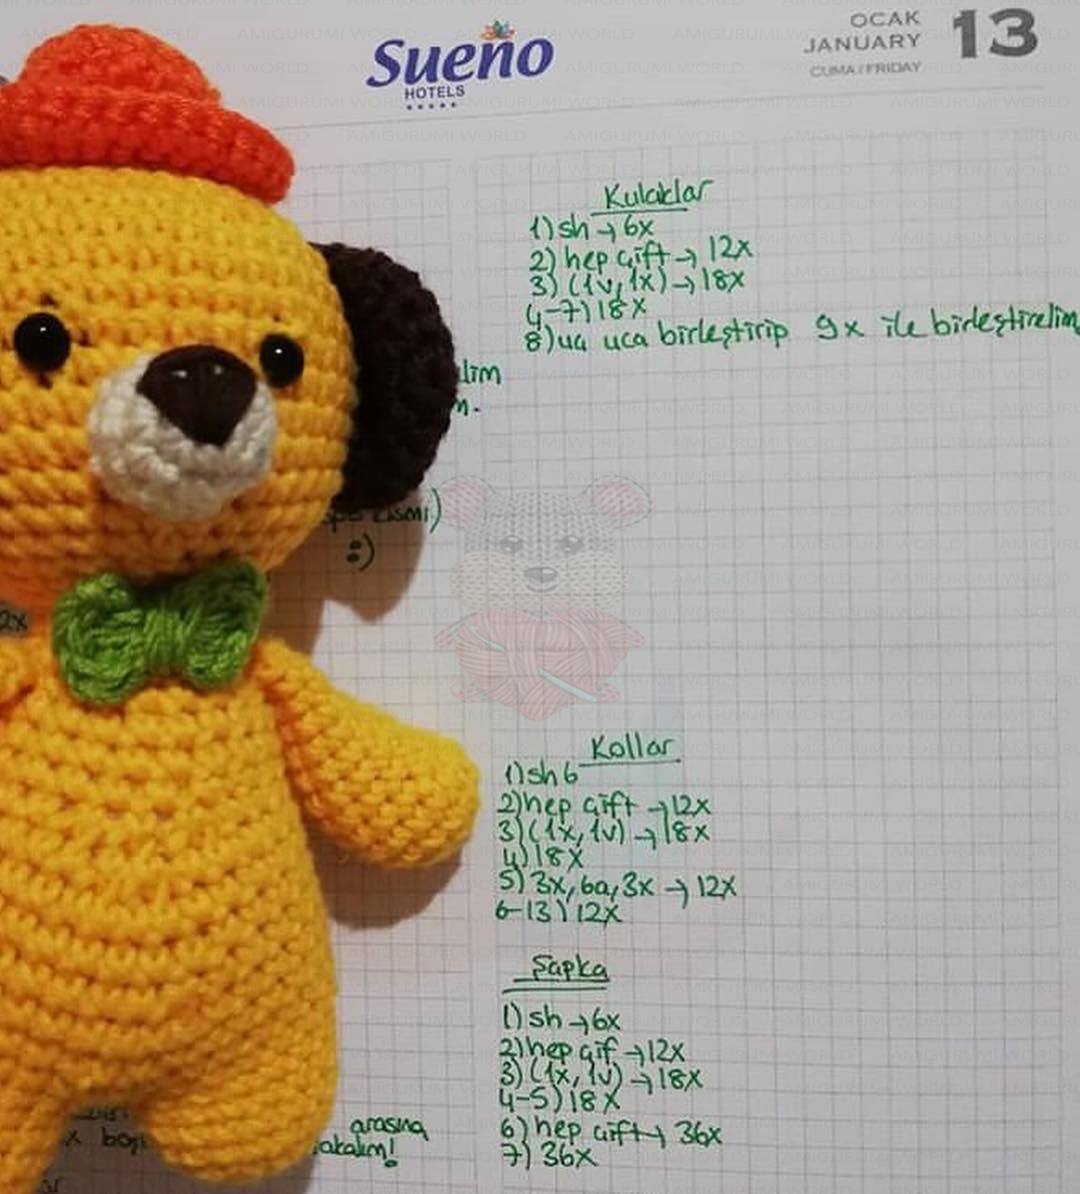 Sueno
HOTELS
OCAK
JANUARY
CUMA/FRIDAY
13
Kulaklar
1) sh → 6x
2) hep çift → 12x
3) (1v, 1x) → 18x
4-7) 18x
8) uç uca birleştirip 9x ile birleştirelim
:)
2x
Kollar
1) sh 6
2) hep çift → 12x
3) (1x, 1v) → 18x
4) 18x
5) 3x, 6a, 3x → 12x
6-13) 12x
Şapka
1) sh → 6x
2) hep çif → 12x
3) (1x, 1v) → 18x
4-5) 18x
6) hep çift → 36x
7) 36x
arasına
AMIGURUMI WORLD